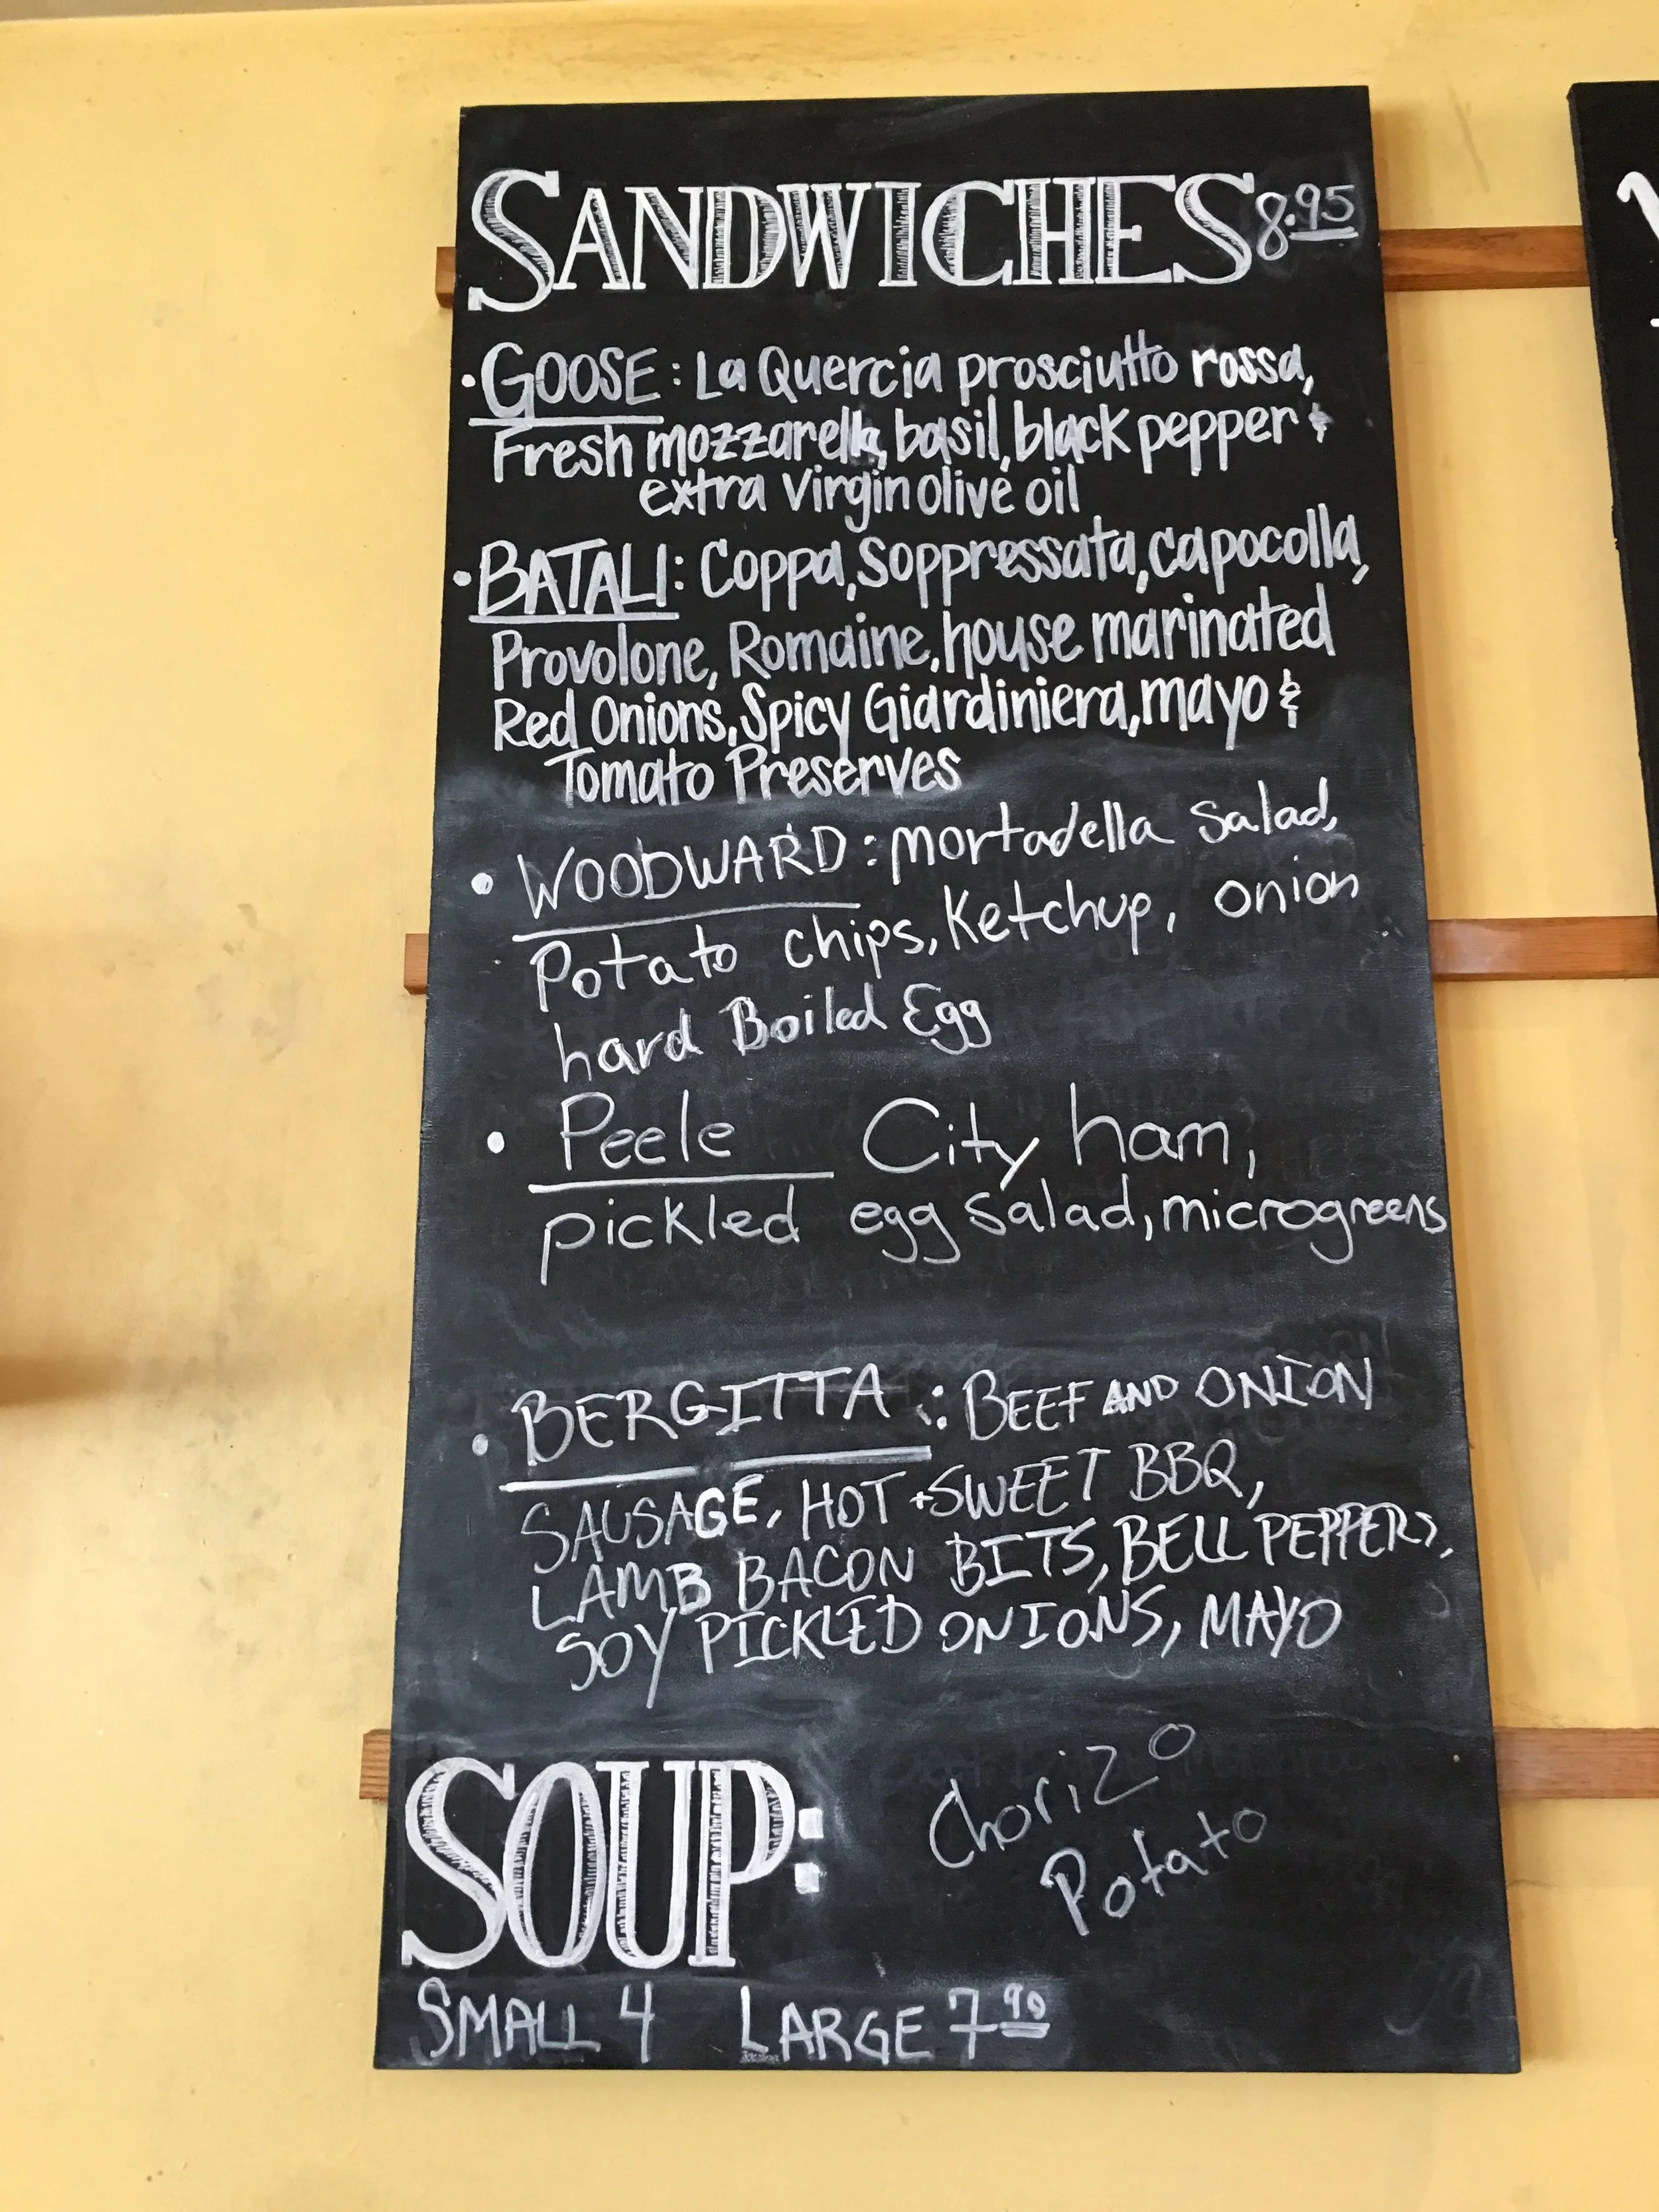 SANDWICHES 8.95
• GOOSE: La Quercia prosciutto rossa,
Fresh mozzarella, basil, black pepper &
extra virgin olive oil
• BATALI: Coppa, Soppressata, capocolla,
Provolone, Romaine, house marinated
Red Onions, Spicy Giardiniera, mayo &
Tomato Preserves
• WOODWARD: mortadella salad,
Potato chips, Ketchup, onion
hard Boiled Egg
• Peele City ham,
pickled egg salad, microgreens
• BERGITTA: BEEF AND ONION
SAUSAGE, HOT + SWEET BBQ,
LAMB BACON BITS, BELL PEPPERS,
SOY PICKLED ONIONS, MAYO
SOUP: Chorizo
Potato
SMALL 4 LARGE 7 90